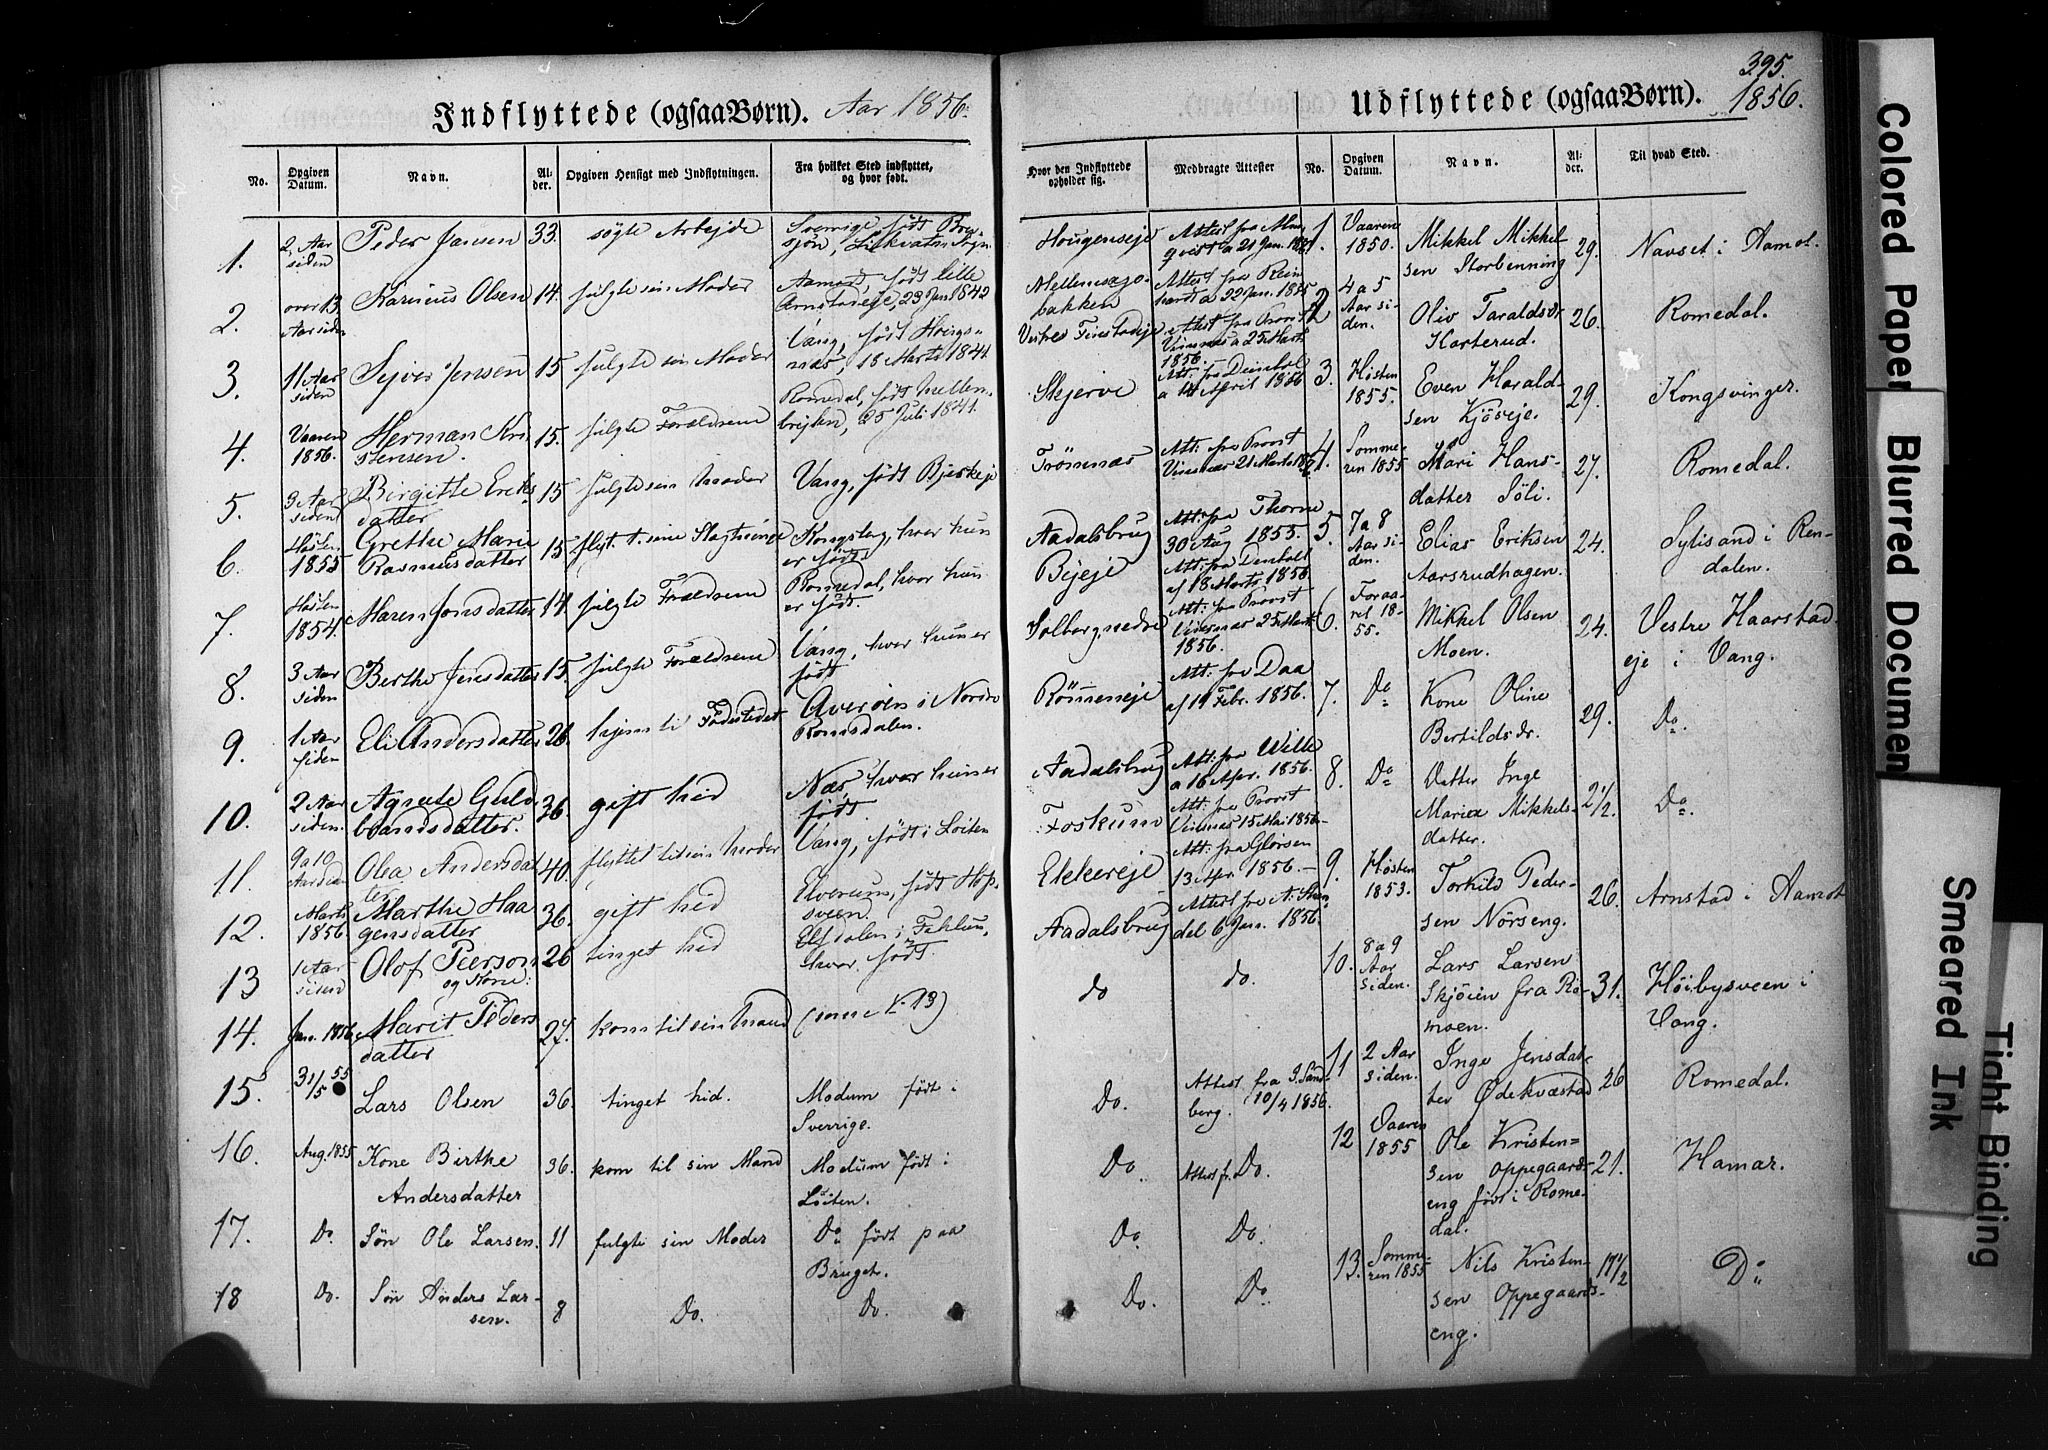 395.
Indflyttede (ogsaa Børn). Aar 1856.
No.
Opgiven Datum.
Navn.
Al-
der.
Opgiven Hensigt med Indflytningen.
Fra hvilket Sted indflyttet,
og hvor født.
Hvor den Indflyttede
opholder sig.
Medbragte Attester
1. 2 Aar siden Peder Jansen 33. søgte Arbejde Sverige, født Hougenseje
2. over 13 Aar siden Karinus Olsen 14. fulgte sin Moder Aamod, født lille 23 Jan 1842
3. 11 Aar siden Sejver Jensen 15 fulgte sin Moder Vang, født 18 Marts 1841.
4. Vaaren 1856. Herman Kri
stensen. 15. fulgte Forældrene Romedal, født 25 Juli 1841. Skjerve
5. 3 Aar siden Birgitte Eriks
datter 15 fulgte sin Moder Vang, født Bjerkeje Trömnæs
6. Høsten 1855 Grethe Marie
Rasmusdatter 15 flyt. t. sine Slægtninge Kongsberg, hvor hun
er født Aadalsbrug Att: fra Thorne
30 Aug 1855.
7. Høsten 1854. Maren Jonsdatter 14. fulgte Forældrene Romedal, hvor hun
er født. Byeje Att: fra
af 18 Marts 1856.
8. 3 Aar siden Berthe Jensdatter 15. fulgte Forældrene Vang, hvor hun er
født Solberg nedre Att: fra Provst 25 Marts
1856.
9. 1 Aar siden Eli Andersdatter 26. hjem til Fødestedet Averøen i Nordre
Romsdalen. Att: fra Daa
af 19 Febr. 1856.
10. 2 Aar siden. Agnete Guld
brandsdatter. 36. gift hid Næs, hvor hun er
født. Aadalsbrug Att: fra Wille
a 16 Apr. 1856.
11. 9 a 10 Aar siden Olea Andersdat
ter 40. flyttet til sin Moder Vang, født i Løiten Foskum Att: fra Provst 15 Mai 1856
12. Marts 1856 Marthe Haa
gensdatter 36. gift hid Elverum, født Ekkereje Att: fra Glørsen
13 Apr. 1856.
13 1 Aar siden Olof Peerson
og Kone: 26 tinget hid Elfdalen i Fahlun,
hvor født. Aadalsbrug Attest fra 6 Jan. 1856.
14. Jan. 1856 Marit Peders
datter 27. kom til sin Mand (som No 13) do do.
15. 31/5 55 Lars Olsen 36. tinget hid. Modum født i
Sverrige. Do. Attest fra J. Sand-
berg. 10/4 1856.
16. Aug. 1855 Kone Birthe
Andersdatter 36. kom til sin Mand Modum født i
Løiten. Do. Attest fr. Do.
17. Do. Søn Ole Larsen. 11 fulgte sin Moder Do født paa
Bruget. Do. Do.
18 Do. Søn Anders Lar-
sen. 8 Do. Do. Do. Do.
Udflyttede (ogsaa Børn). 1856.
No.
Opgiven
Datum.
Navn.
Al-
der.
Til hvad Sted.
1. Vaaren 1850. Mikkel Mikkel
sen Storbenning 29. Navset i Aamot.
2 4 a 5
Aar si-
den. Oliv Taraldsdr
Korterud. 26. Romedal.
3. Høsten 1855. Even Harald-
sen Kjösveje. 29. Kongsvinger.
4. Somme-
ren 1855 Mari Hans-
datter Söli. 27. Romedal.
5. 7 a 8
Aar si-
den. Elias Eriksen
Aarsrudhagen. 24. Sylisand i Ren-
dalen.
6. Foraa-
ret 18-
55. Mikkel Olsen
Moen. 24. Vestre Haarstad
eje i Vang.
7. Do Kone Oline
Bertildsdr. 29. Do.
8. Do Datter Inge
Marien Mikkels-
datter. 2 1/2. Do.
9. Høsten 1853. Torkild Peder-
sen Nörseng. 26. Arnstad i Aamot
10. 8 a 9
Aar
siden. Lars Larsen
Skjöien fra Ro-
moen. 31. Höibysveen i
Vang.
11 2 Aar
siden. Inge Jensdat-
ter Ödekvæstad 26 Romedal.
12 Vaaren 1855 Ole Kristen-
sen Oppegaards-
eng født i Rome-
dal. 21. Hamar.
13. Somme-
ren 1855 Nils Kristen-
sen Oppegaards-
eng. 17 1/2 Do
Colored Paper
Blurred Document
Smeared Ink
Tight Binding